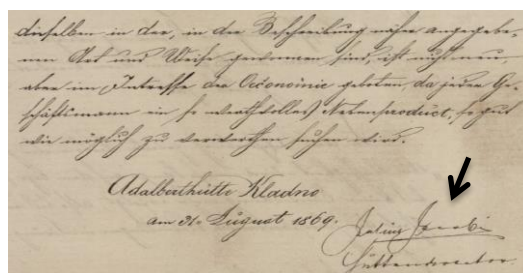 dieselben in der, in der Beschreibung näher angegebe-
nen Art und Weise gewonnen sind, ist nicht neu,
aber im Interesse der Oeconomie geboten, da jeder Ge-
schäftsmann ein so werthvolles Nebenproduct, so gut
wie möglich zu verwerthen suchen wird.
Adalberthütte Kladno
am 31. August 1869.
Julius Jacobi
Hüttendirector